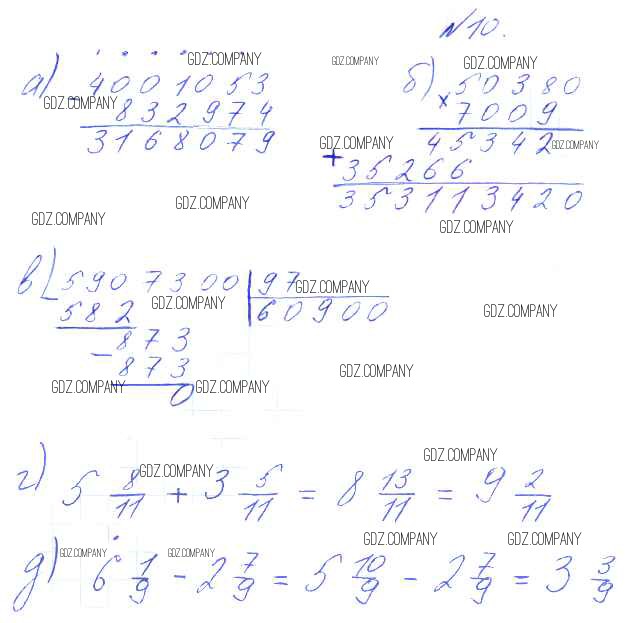 №10.
а) − 4001053
GDZ.COMPANY
GDZ.COMPANY
832974
3168079
GDZ.COMPANY
GDZ.COMPANY
б) × 50380
GDZ.COMPANY
7009
GDZ.COMPANY
45342
GDZ.COMPANY
+ 35266
353113420
GDZ.COMPANY
GDZ.COMPANY
в) 5907300 | 97
GDZ.COMPANY
582
60900
GDZ.COMPANY
GDZ.COMPANY
873
− 873
GDZ.COMPANY
GDZ.COMPANY
GDZ.COMPANY
0
GDZ.COMPANY
г) 5 8/11 + 3 5/11 = 8 13/11 = 9 2/11
GDZ.COMPANY
GDZ.COMPANY
GDZ.COMPANY
GDZ.COMPANY
GDZ.COMPANY
д) 6 1/9 − 2 7/9 = 5 10/9 − 2 7/9 = 3 3/9